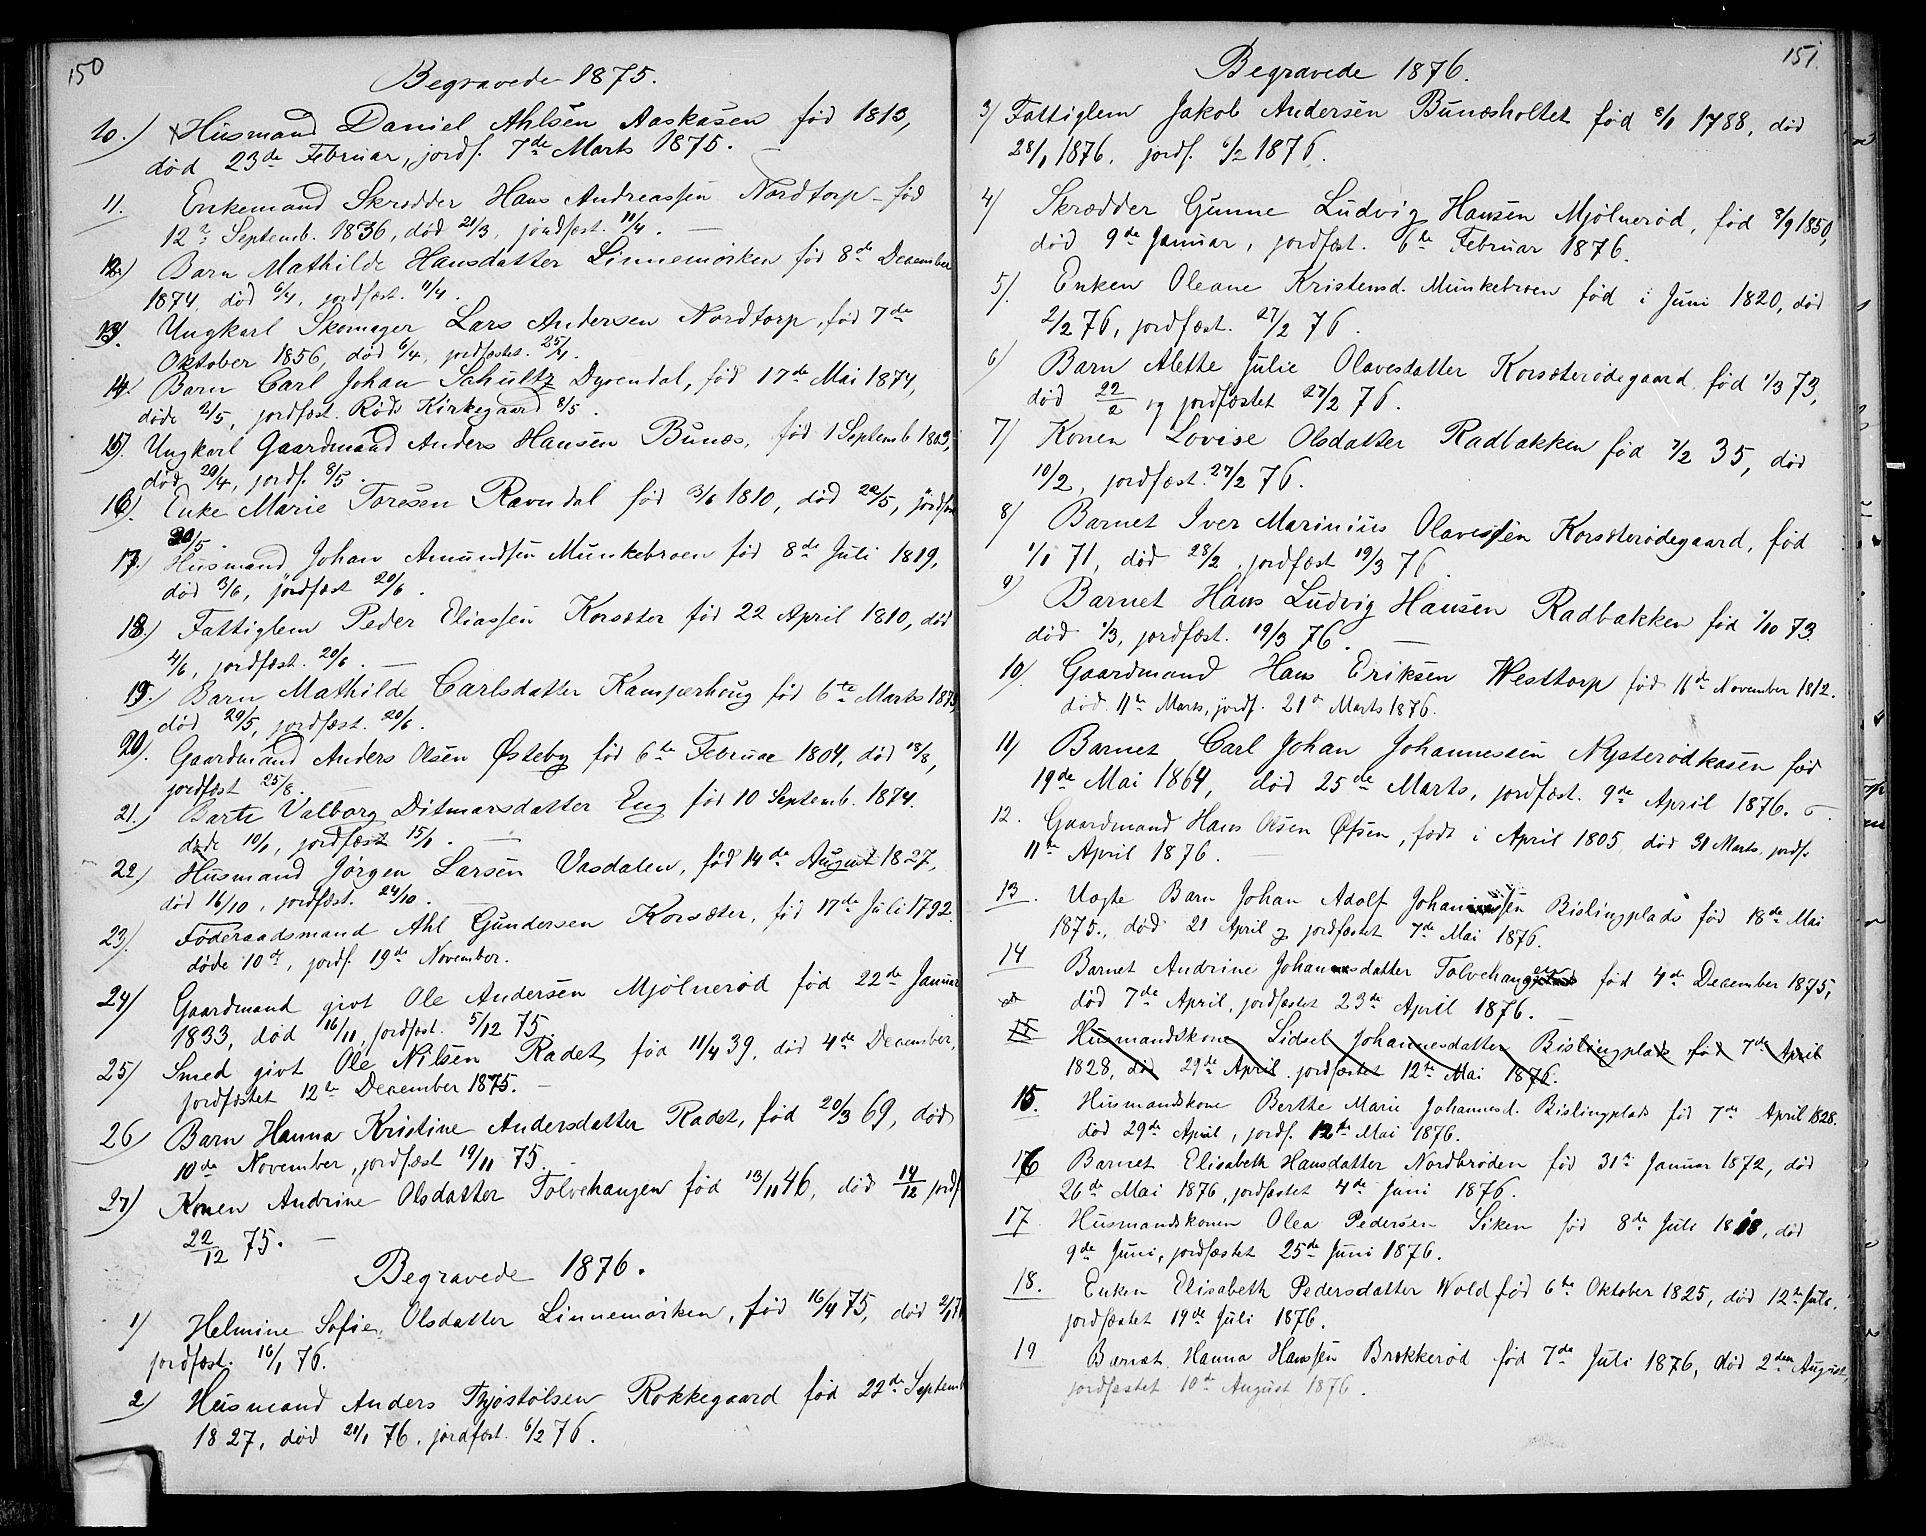 150
Begravede 1875.
10.) Husmand Daniel Ahlsen Aaskasen fød 1813,
død 23de Februar, jordf. 7de Marts 1875.
11. Enkemand Skrædder Hans Andreassen Nordtorp fød
12te Septemb. 1836, død 21/3, jordfæst. 11/4.
12.) Barn Mathilde Hansdatter Linnemørken fød 8de December
1874, død 6/4, jordfæst. 11/4.
13. Ungkarl Skomager Lars Andersen Nordtorp, fød 7de
Oktober 1856, død 6/4, jordfæstet. 25/4.
14. Barn Carl Johan Schultz Dyrendal, fød 17de Mai 1874,
døde 2/5, jordfæst. Røds Kirkegaard 8/5.
15. Ungkarl Gaardmand Anders Hansen Bunæs, fød 1 Septemb. 1803,
død 29/4, jordf. 8/5.
16. Enke Marie Toresen Ravndal fød 3/6 1810, død 22/5, jordfæst
30/5.
17. Husmand Johan Amundsen Munkebroen fød 8de Juli 1819,
død 3/6, jordfæst 20/6.
18.) Fattiglem Peder Eliassen Korsæter fød 22 April 1810, død
4/6, jordfæst. 20/6.
19.) Barn Mathilde Carlsdatter Kamperhoug fød 6te Marts 1875,
død 29/5, jordfæst. 20/6.
20. Gaardmand Anders Olsen Østeby fød 6te Februar 1804, død 18/8,
jordfæst 25/8.
21.) Valborg Ditmarsdatter Eng fød 10 Septemb. 1874.
døde 10/, jordfæst 15/.
22) Husmand Jørgen Larsen Vasdalen, fød 14de August 1827,
død 16/10, jordfæst. 24/10.
23). Føderaadsmand Ahl Gundersen Korsæter, fød 17de Juli 1792.
døde 10de, jordf. 19de November.
24) Gaardmand givt Ole Andersen Mjølnerød fød 22de Januar
1833, død 16/11, jordfæst. 5/12 75.
25) Smed givt Ole Nilsen Radet, fød 11/4 39, død 4de December,
jordfæstet 12te December 1875.
26) Barn Hanna Kristine Andersdatter Radet, fød 20/3 69, død
10de November, jordfæst 19/11 75.
27) Konen Andrine Olsdatter Tolvehangen fød 13/11 46, død 14/12 jordf.
22/12 75.
Begravede 1876.
1) Helmine Sofie Olsdatter Linnemørken, fød 16/4 75, død 2/1 76
jordfæst. 16/1 76.
2) Husmand Anders Thjøstolsen Rokkegaard fød 22de Septemb
1827, død 21/1 76, jordfæst. 6/2 76.
151.
Begravede 1876.
3) Fattiglem Jakob Andersen Bunæsholtet fød 8/1 1788, død
28/1 1876, jordf. 6/2 1876.
4) Skrædder Gunne Ludvig Hansen Mjølnerød, fød 8/9 1850,
død 9de Januar, jordfæst. 6te Februar 1876.
5). Enken Oleane Kristensd. Munkebroen fød i Juni 1820, død
2/2 76, jordfæst. 27/2 76.
6) Barn Alette Julie Olavesdatter Korsæterødegaard, fød 1/3 73,
død 22/2 og jordfæstet 27/2 76.
7) Konen Lovise Olsdatter Radbakken fød 7/2 35, død
10/2, jordfæst. 27/2 76.
8) Barnet Iver Marinius Olavesen Korsæterødegaard, fød
1/1 71, død 28/2, jordfæst 19/3 76.
9) Barnet Hans Ludvig Hansen Radbakken fød 1/10 73.
død 1/3, jordfæst. 19/3 76.
10). Gaardmand Hans Eriksen Westtorp fød 16de November 1812.
død 11te Marts, jordf. 21de Marts 1876.
11) Barnet Carl Johan Johannessen Nysterødkasen fød
19de Mai 1864, død 25de Marts, jordfæst. 9de April 1876.
12. Gaardmand Hans Olsen Øisen, født i April 1805, død 31 Marts, jordf.
11te April 1876.
13. Uægte Barn Johan Adolf Bislingplads fød 18de Mai
1875., død 21 April og jordfæstet 7de Mai 1876.
14 Barnet Andrine Johansdatter Tolvehangen fød 4de December 1875,
død 7de April, jordfæstet 23de April 1876.
15 Husmandskone Sidsel Johannesdatter Bislingplads fød 7de April
1828, død 29de April jordfæstet 12te Mai 1876.
15. Husmandskone Berthe Marie Johannesd. Bislingplads fød 7de April 1828.
død 29de April, jordf. 12te Mai 1876.
16 Barnet Elisabeth Hansdatter Nordbrøden fød 31te Januar 1872, død
26de Mai 1876, jordfæstet 4de Juni 1876.
17 Husmandskonen Olea Pedersen Siken fød 8de Juli 1818, død
9de Juni, jordfæstet 25de Juni 1876.
18. Enken Elisabeth Pedersdatter Wold fød 6te Oktober 1825, død 12te Juli,
jordfæstet 19de Juli 1876.
19 Barnet Hanna Hanssen Brækkerød fød 7de Juli 1876, død 2den August,
jordfæstet 10de August 1876.